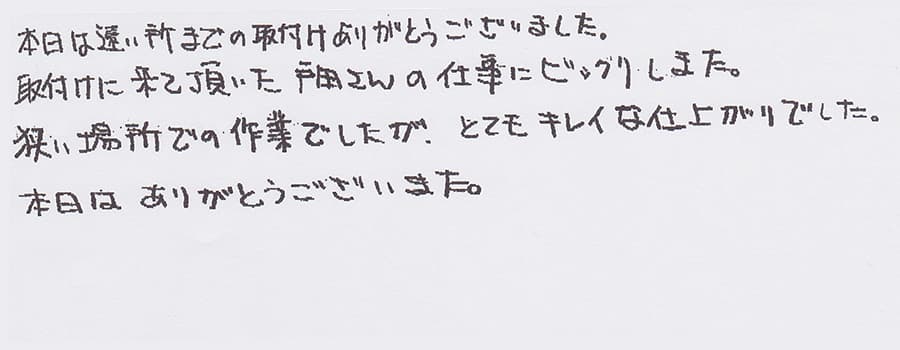 本日は遠い所までの取付けありがとうございました。
取付けに来て頂いた戸田さんの仕事にビックリしました。
狭い場所での作業でしたが、とてもキレイな仕上がりでした。
本日はありがとうございました。